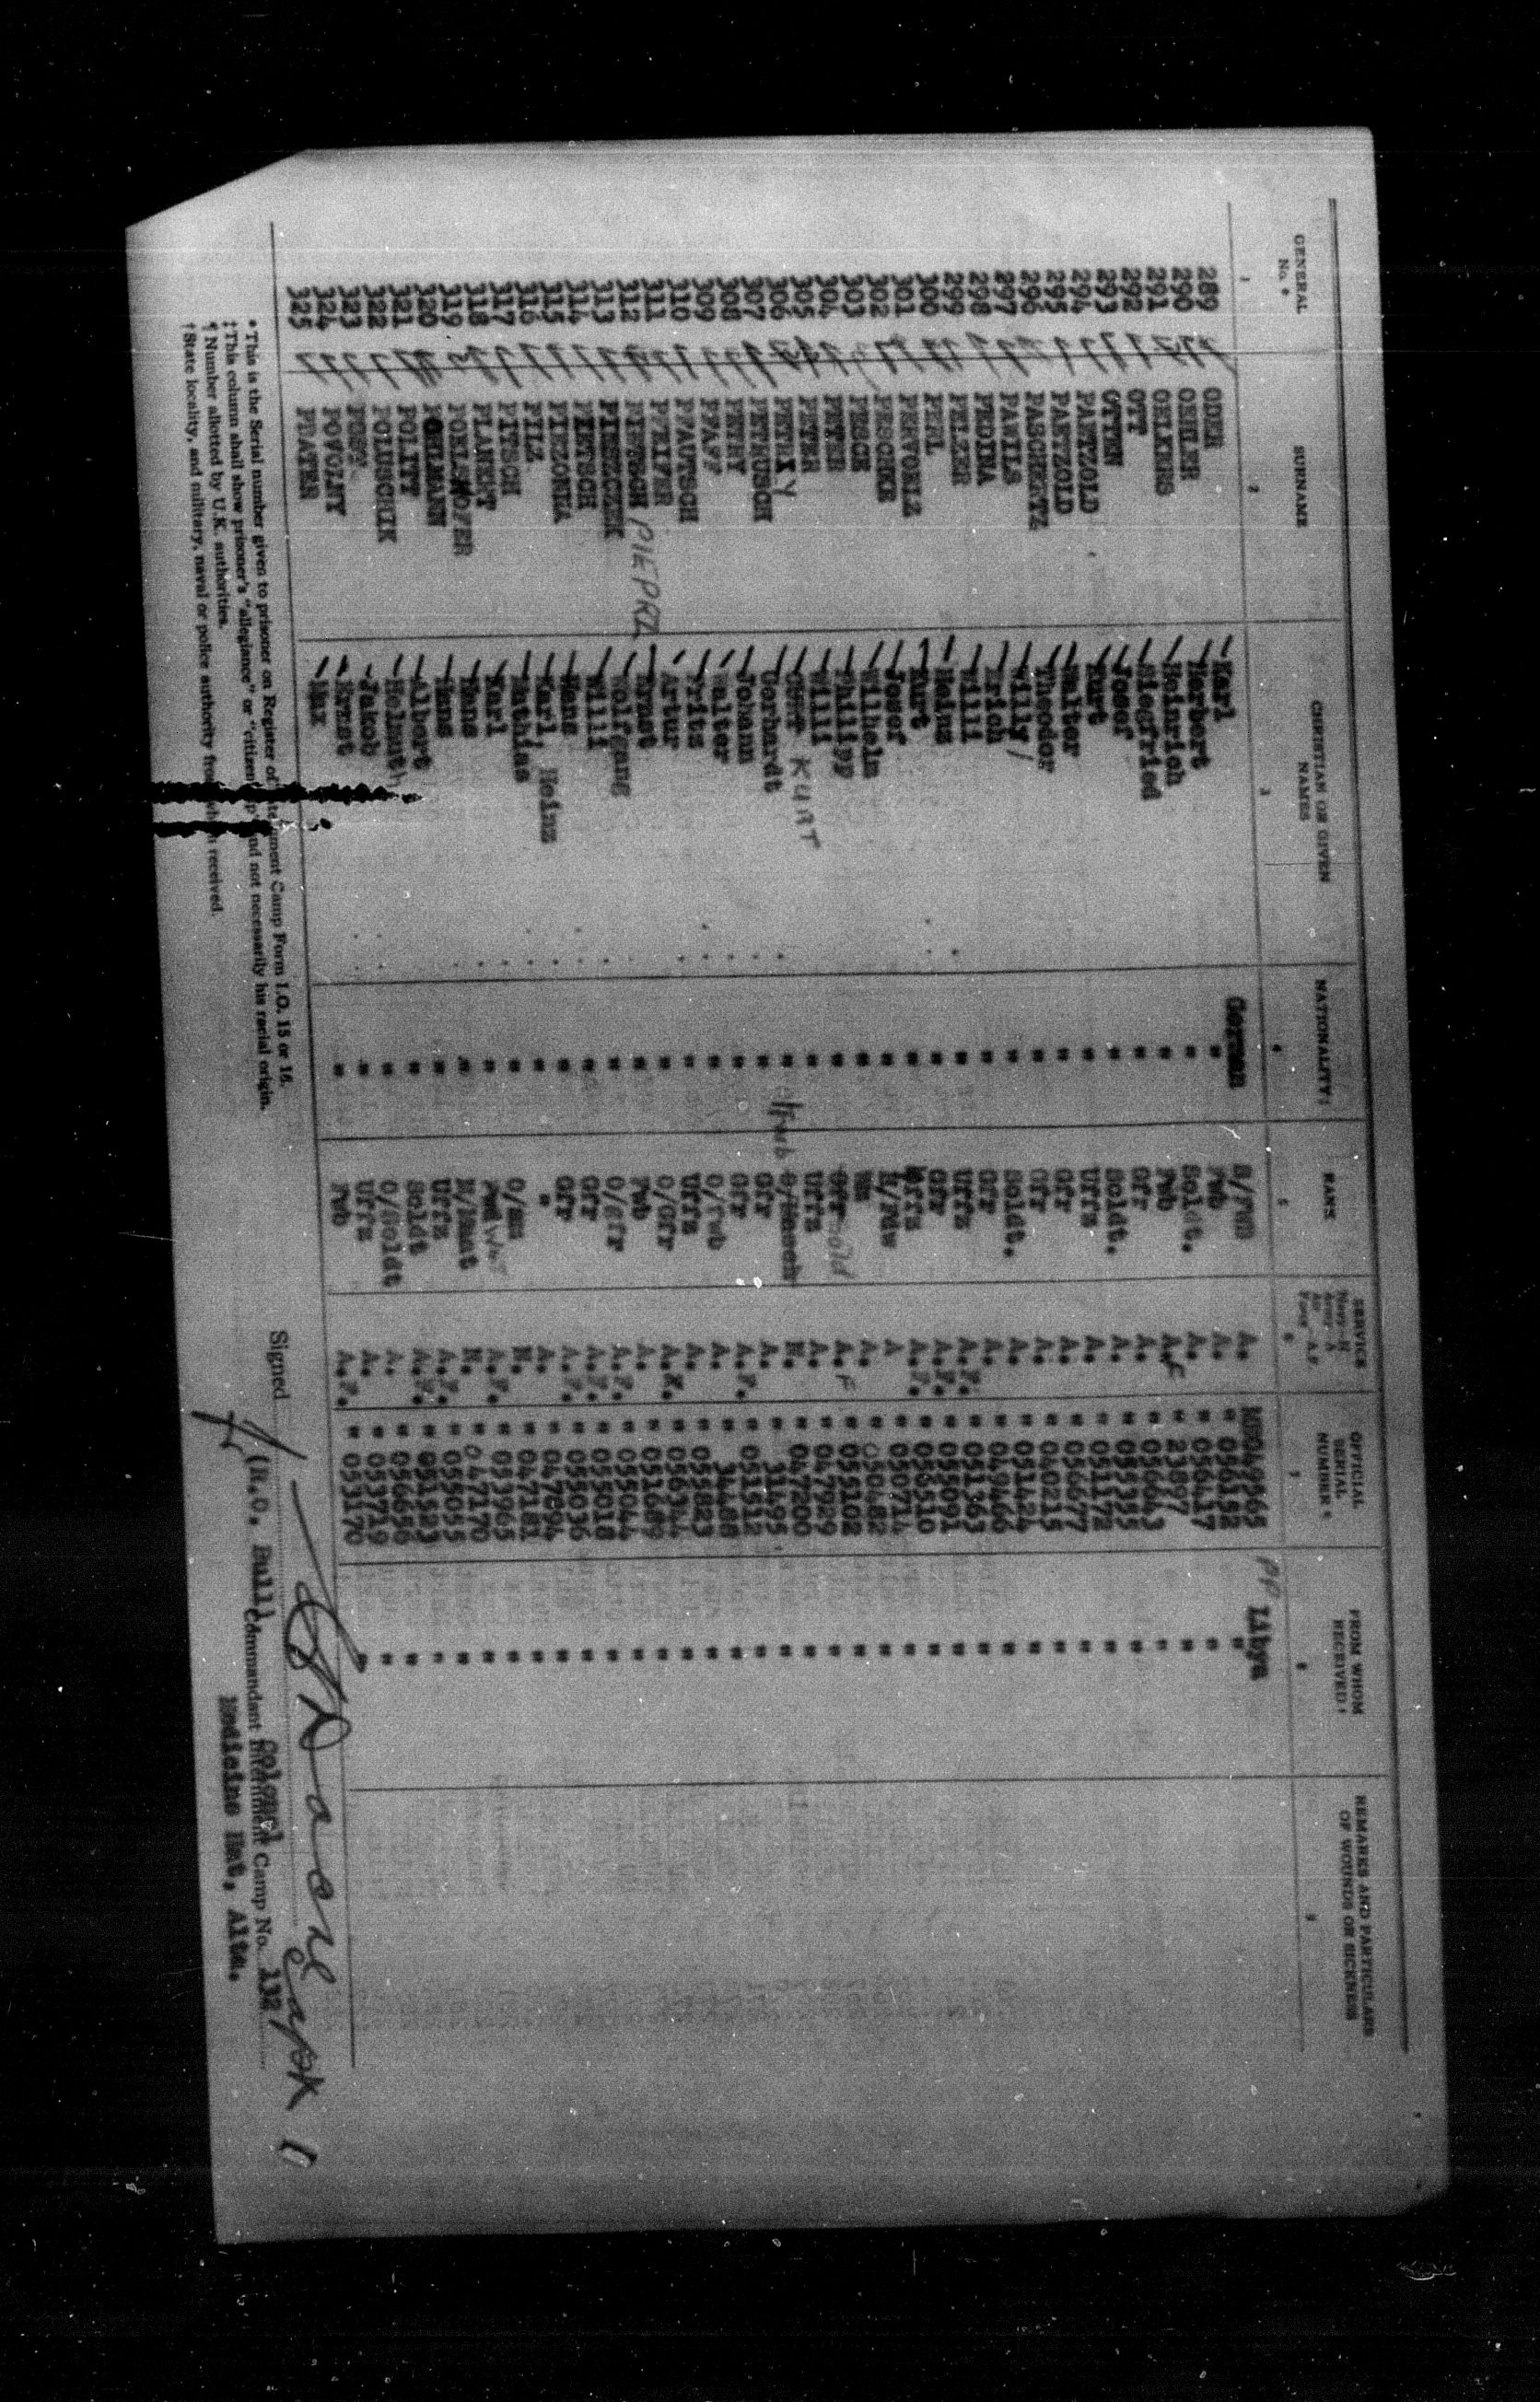 GENERAL No. * SURNAME CHRISTIAN OR GIVEN NAMES NATIONALITY‡ RANK SERVICE Navy—N Army—A Air Force—A.F. OFFICIAL SERIAL NUMBER ¶ FROM WHOM RECEIVED † REMARKS AND PARTICULARS OF WOUNDS OR SICKNESS
1 2 3 4 5 6 7 8 9
289 ODER Karl German S/FWB A. 049565 PP Libya
290 OEHLER Herbert " Fwb A. " 056152 "
291 OELKERS Heinrich " Soldt. A. " 056417 "
292 OTT Siegfried " Fwb A.F " 23897 "
293 OTTEN Josef " Gfr A. " 056643 "
294 PAETZOLD Kurt " Soldt. A. " 055355 "
295 PAETZOLD Walter " Uffz A. " 051172 "
296 PASCHERTZ Theodor " Gfr A. " 056677 "
297 PAWILS Willy " Gfr A. " 040215 "
298 PEDINA Erich " Soldt. A. " 051424 "
299 PELZER Willi " Gfr A. " 049466 "
300 PERL Heinz " Uffz A.F. " 051363 "
301 PERVOELZ Kurt " Gfr A.F. " 055091 "
302 PESCHKE Josef " Uffz A.F. " 055510 "
303 PESCH Wilhelm " H/Fdw A " 050714 "
304 PETER Philipp " Wm A. " 050482 "
305 PETER Willi " Gfr Sold A.F " 055102 "
306 PETRY KURT " Uffz A. " 047929 "
307 PETRUSCH Gerhardt " O/Masch Fwb N. " 047200 "
308 PETRY Johann " Gfr A. " 31495 "
309 PFAFF Walter " Gfr A.F. " 051512 "
310 PFAUTSCH Fritz " O/Fwb A. " 34488 "
311 PFEIFER Artur " Uffz A. " 055823 "
312 PIETSCH PIEPRZ Ernst " O/Gfr " 056344 "
313 PIESZCZEK Wolfgang " Fwb A. " 051689 "
314 PIETSCH Willi " O/Gfr A.F. " 055044 "
315 PIEZONKA Hans " Gfr A.F. " 055018 "
316 PILZ Karl, Heinz " Gfr A.F. " 055036 "
317 PITSCH Mathias " " A. " 047894 "
318 PLANERT Karl " O/Mn N. " 047181 "
319 Hans " A.F. " 053965 "
320 POHLMANN Hans " M/Maat N. " 047170 "
321 POLITT Albert " Uffz A.F. " 055055 "
322 POLUSCHIK Helmuth " Soldt A.F. " 051523 "
323 POST Jakob " O/Soldt A. " 056656 "
324 POVOLNY Ernst " Uffz A. " 053719 "
325 PRAYER Max " Fwb A.F. " 053170 "
* This is the Serial number given to prisoner on Register of Internment Camp Form I.O. 15 or 16.
‡ This column shall show prisoner's "allegiance" or "citizenship" and not necessarily his racial origin.
¶ Number allotted by U.K. authorities.
† State locality, and military, naval or police authority from which received.
Signed
(R.O. Bull) Colonel
Commandant Internment Camp No. 132
Medicine Hat, Alta.